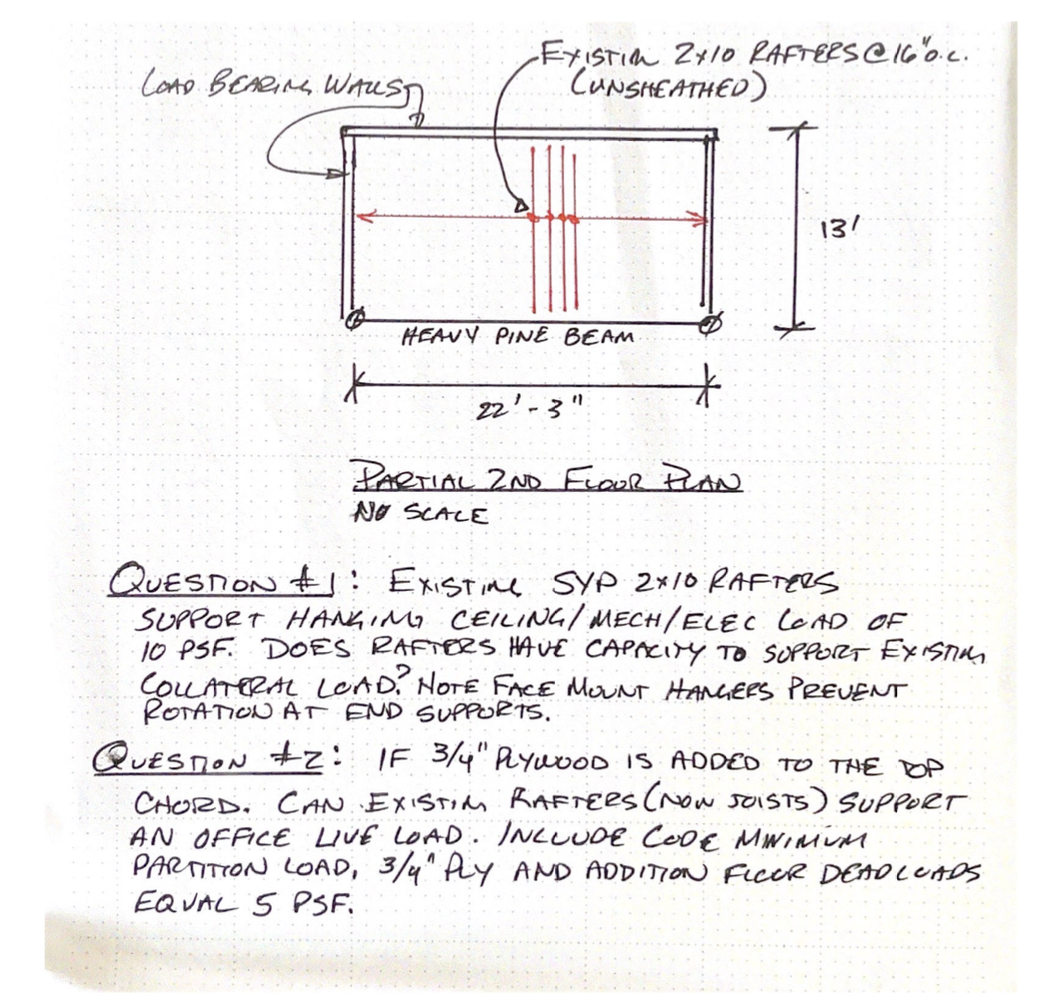 EXISTING 2x10 RAFTERS @ 16" o.c.
(UNSHEATHED)
LOAD BEARING WALLS
13'
HEAVY PINE BEAM
22'-3"
PARTIAL 2ND FLOOR PLAN
NO SCALE
QUESTION #1: EXISTING SYP 2x10 RAFTERS
SUPPORT HANGING CEILING/MECH/ELEC LOAD OF
10 PSF. DOES RAFTERS HAVE CAPACITY TO SUPPORT EXISTING
COLLATERAL LOAD? NOTE FACE MOUNT HANGERS PREVENT
ROTATION AT END SUPPORTS.
QUESTION #2: IF 3/4" PLYWOOD IS ADDED TO THE TOP
CHORD. CAN EXISTING RAFTERS (NOW JOISTS) SUPPORT
AN OFFICE LIVE LOAD. INCLUDE CODE MINIMUM
PARTITION LOAD, 3/4" PLY AND ADDITION FLOOR DEADLOADS
EQUAL 5 PSF.